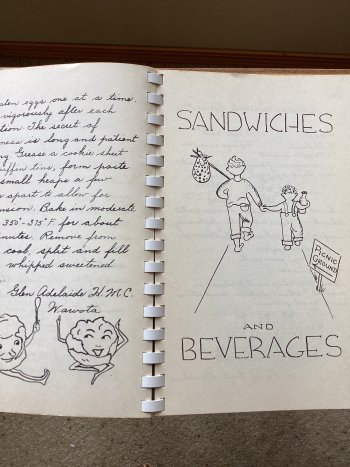 eggs one at a time.
vigorously after each
The secret of
is long and patient
Grease a cookie sheet
tins, form paste
small heaps a few
apart to allow for
Bake in moderate
350°-375°F for about
Remove from
cool, split and fill
whipped sweetened
Glen Adelaide H.M.C.
Wawota
SANDWICHES
PICNIC
GROUND
AND
BEVERAGES